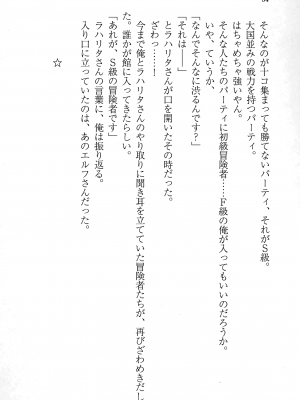 そんなのが十コ集まっても勝てないパーティ、それがＳ級。
大国並みの戦力を持つパーティ。
はちゃめちゃ強いやん。
そんな人たちのパーティに初級冒険者……Ｆ級の俺が入ってもいいのだろうか。
いや、ていうか、
「なんでそんなに渋るんです？」
「それは――」
とラハリタさんが口を開いたその時だった。
ざわっ……
今まで俺とラハリタさんのやり取りに聞き耳を立てていた冒険者たちが、再びざわめきだし
た。誰かが館に入ってきたらしい。
「あれが、Ｓ級の冒険者です」
ラハリタさんの言葉に、俺は振り返る。
入り口に立っていたのは、あのエルフさんだった。
☆